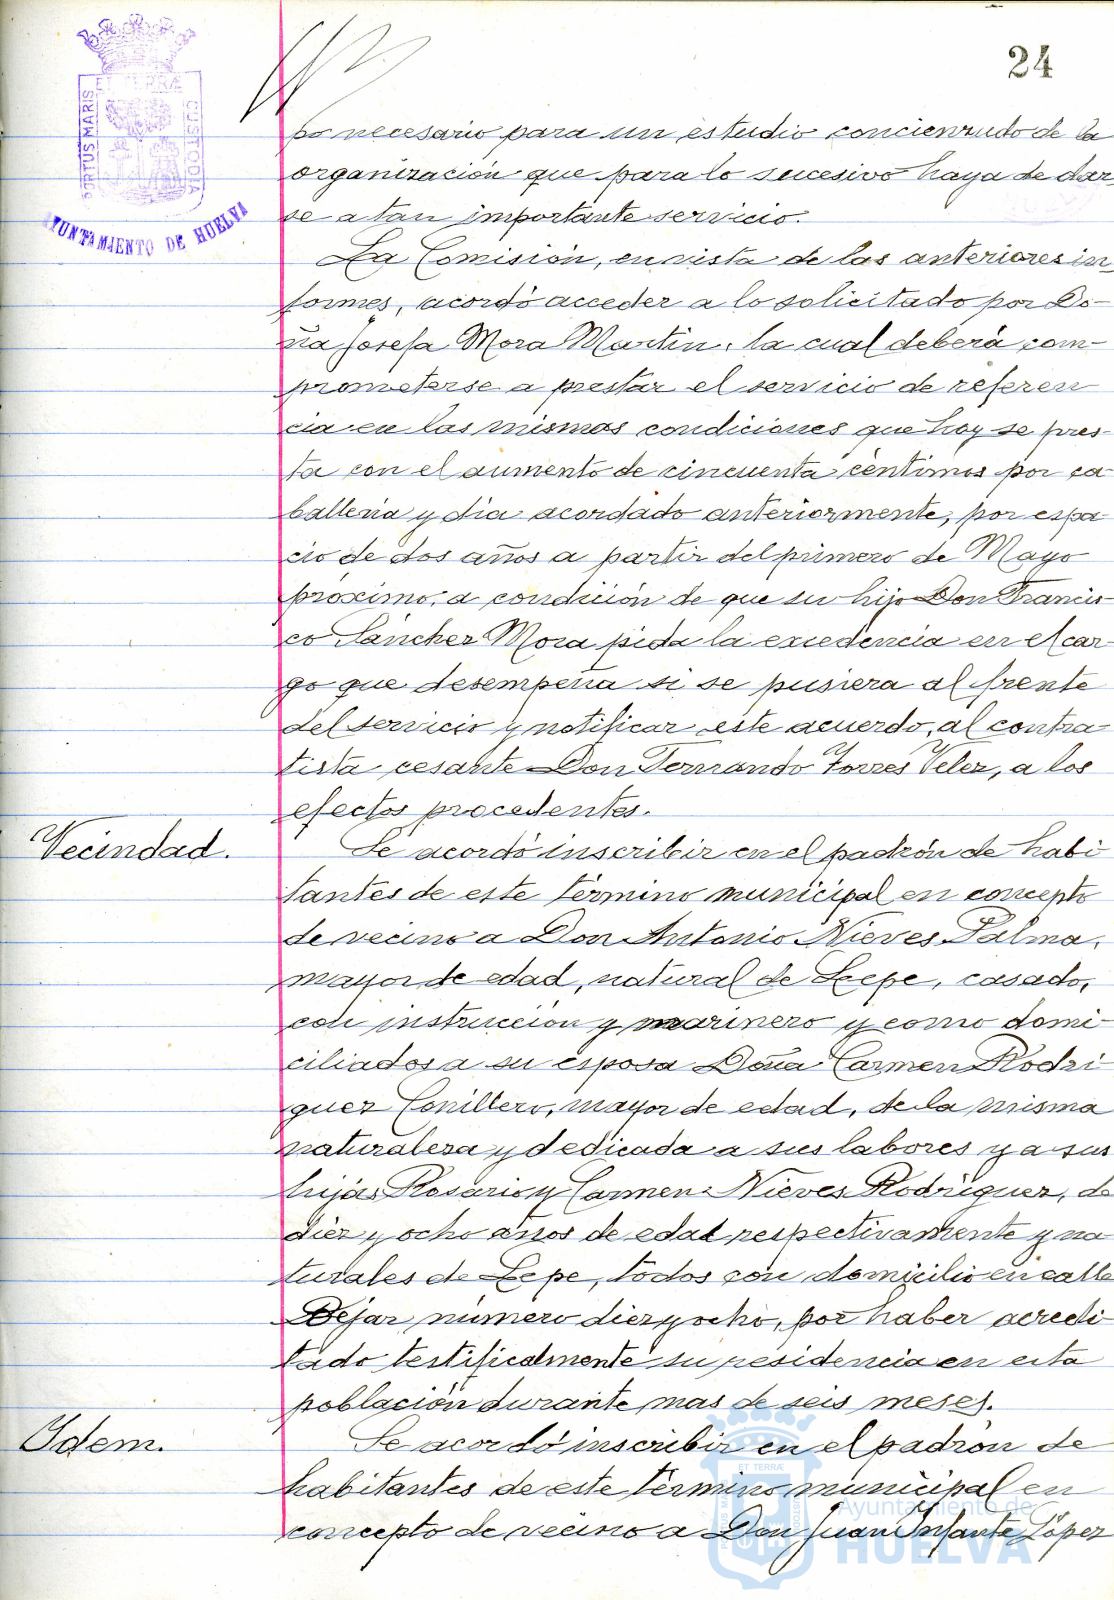 24
PORTUS MARIS ET TERRÆ CUSTODIA
AYUNTAMIENTO DE HUELVA
po necesario para un estudio concienzudo de la
organización que para lo sucesivo haya de dar
se a tan importante servicio.
La Comisión, en vista de los anteriores in
formes, acordó acceder a lo solicitado por Do-
ña Josefa Mora Martin, la cual deberá com-
prometerse a prestar el servicio de referen
cia en las mismas condiciones que hoy se pres-
ta con el aumento de cincuenta centimos por ca
balleria y dia acordado anteriormente, por espa
cio de dos años a partir del primero de Mayo
próximo, a condición de que su hijo Don Francis
co Sánchez Mora pida la excedencia en el car-
go que desempeña si se pusiera al frente
del servicio y notificar este acuerdo, al contra
tista cesante Don Fernando Torres Velez, a los
efectos procedentes.
Vecindad.
Se acordó inscribir en el padrón de habi
tantes de este término municipal en concepto
de vecino a Don Antonio Nieves Palma,
mayor de edad, natural de Lepe, casado,
con instrucción y marinero y como domi-
ciliados a su esposa Doña Carmen Rodri
guez Conillero, mayor de edad, de la misma
naturaleza y dedicada a sus labores y a sus
hijas Rosario y Carmen Nieves Rodriguez, de
diez y ocho años de edad respectivamente y na
turales de Lepe, todos con domicilio en calle
Bejar, número diez y ocho, por haber acredi
tado testificalmente su residencia en esta
población durante mas de seis meses.
Idem.
Se acordó inscribir en el padrón de
habitantes de este término municipal en
concepto de vecino a Don Juan Infante López
Ayuntamiento de
HUELVA